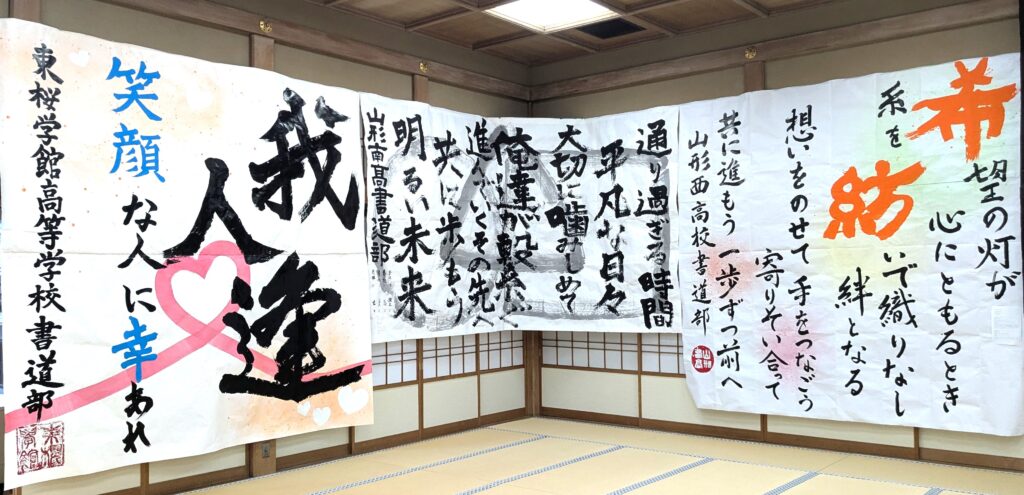 希望の灯が
心にともるとき
糸を紡いで織りなし
絆となる
想いをのせて 手をつなごう
寄りそい合って
共に進もう 一歩ずつ前へ
山形西高校書道部
通り過ぎる時間
平凡な日々
大切に噛みしめて
俺達が
その先へ
共に歩もう
明るい未来
山形南高書道部
我逢人
笑顔な人に幸あれ
東桜学館高等学校書道部
東桜学館